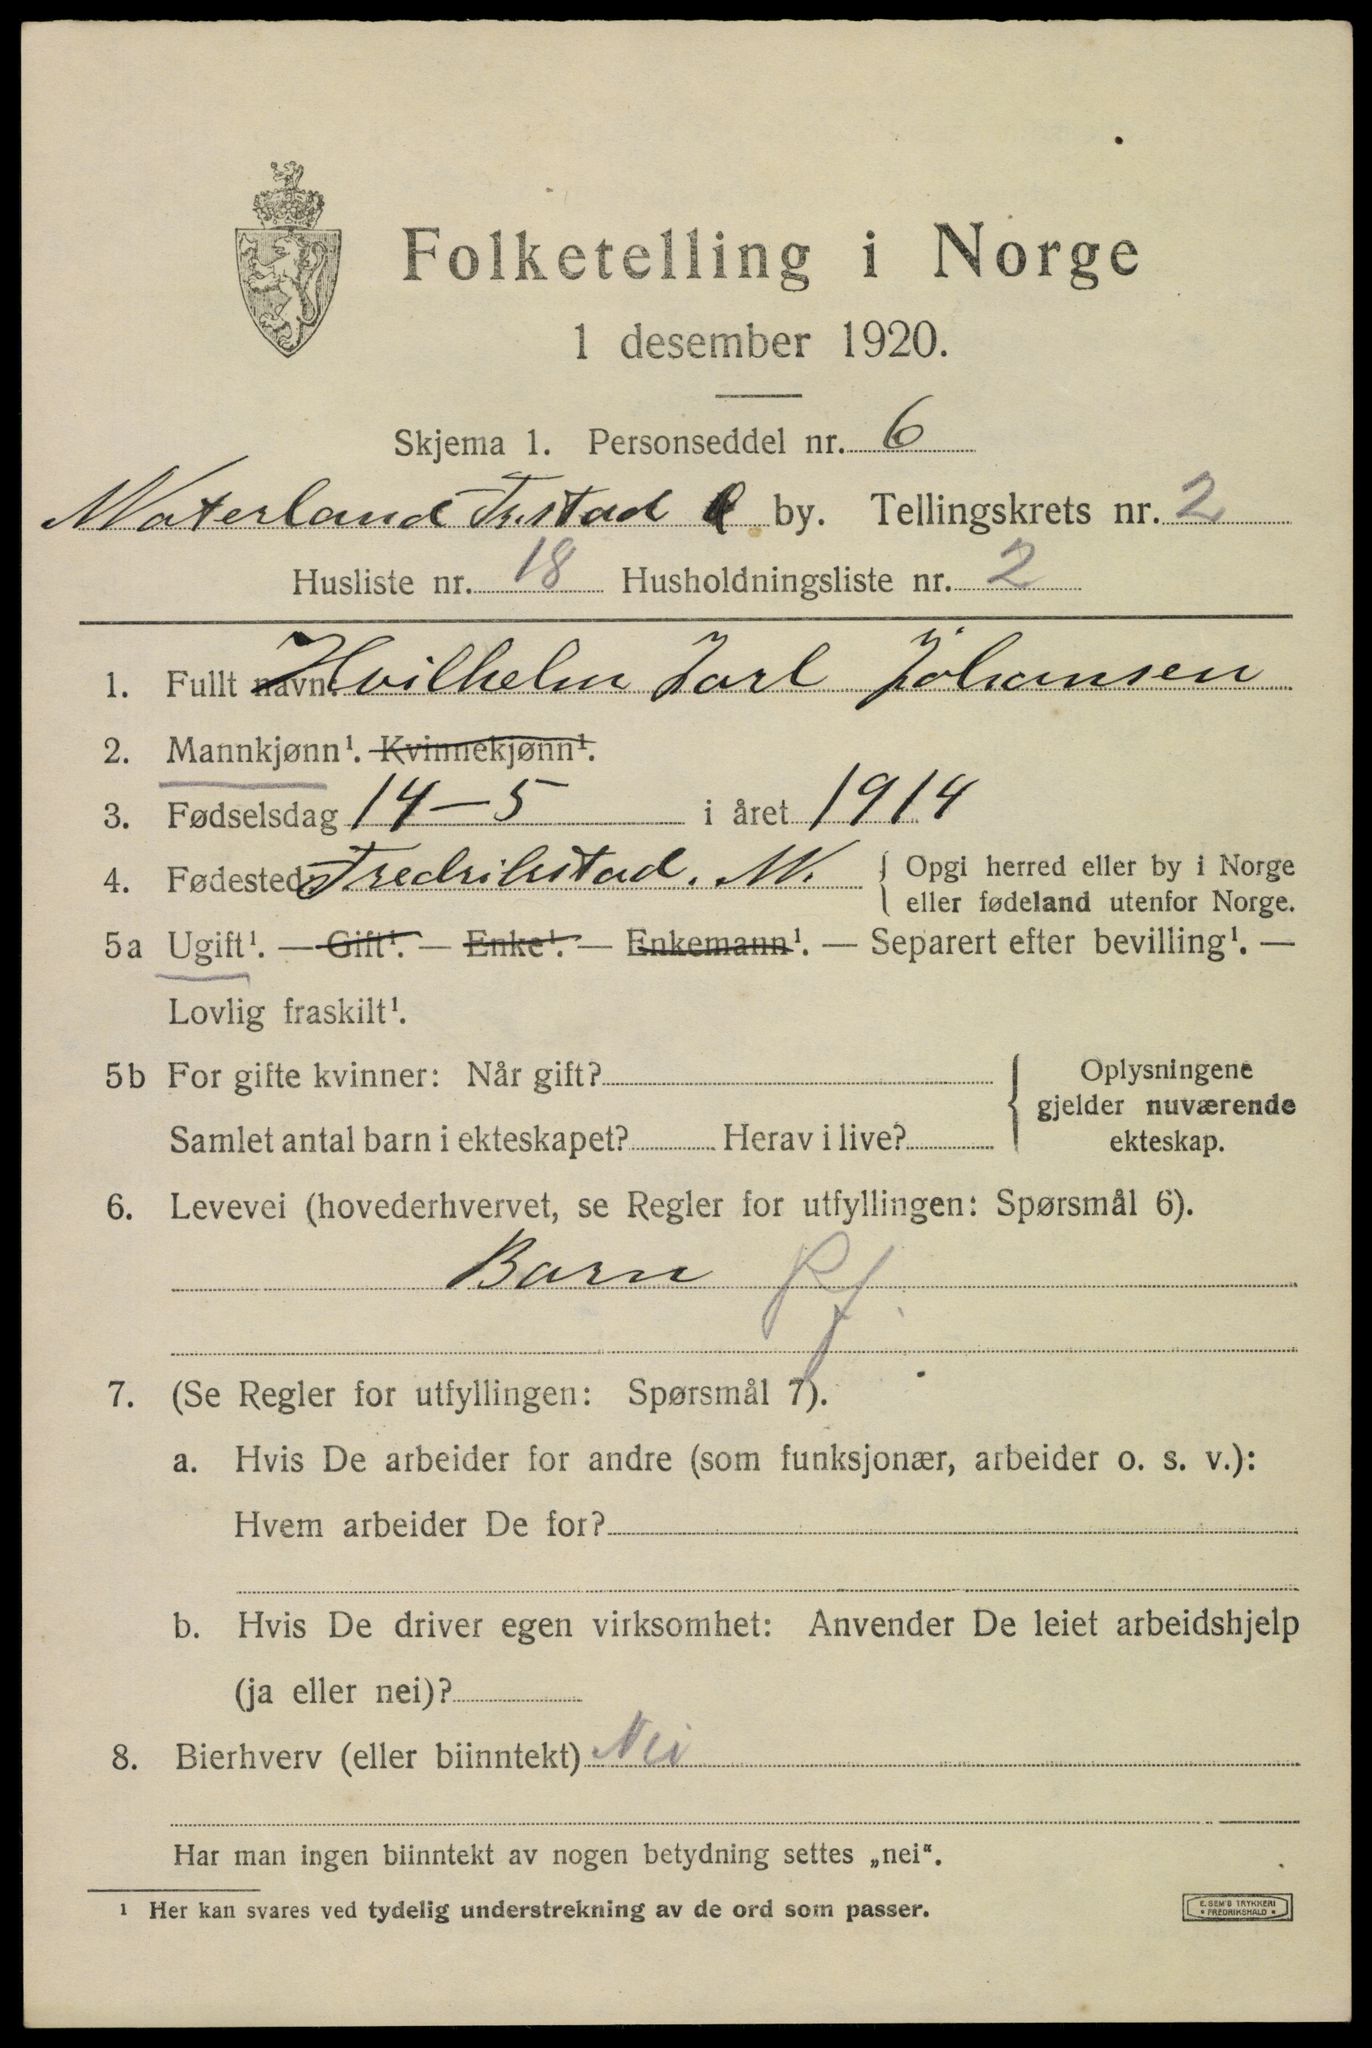 Folketelling i Norge
1 desember 1920.
Skjema 1. Personseddel nr. 6
Materland Fr.stad by. Tellingskrets nr. 2
Husliste nr. 18 Husholdningsliste nr. 2
1. Fullt navn. Hvilhelm Jarl Johansen
2. Mannkjønn¹. Kvinnekjønn¹.
3. Fødselsdag 14-5 i året 1914
4. Fødested Fredrikstad. { Opgi herred eller by i Norge
eller fødeland utenfor Norge.
5a Ugift¹. — Gift¹. — Enke¹. — Enkemann¹. — Separert efter bevilling¹. —
Lovlig fraskilt¹.
5b For gifte kvinner: Når gift? { Oplysningene
gjelder nuværende
Samlet antal barn i ekteskapet? Herav i live? ekteskap.
6. Levevei (hovederhvervet, se Regler for utfyllingen: Spørsmål 6).
Barn
7. (Se Regler for utfyllingen: Spørsmål 7).
a. Hvis De arbeider for andre (som funksjonær, arbeider o. s. v.):
Hvem arbeider De for?
b. Hvis De driver egen virksomhet: Anvender De leiet arbeidshjelp
(ja eller nei)?
8. Bierhverv (eller biinntekt) Nei
Har man ingen biinntekt av nogen betydning settes „nei“.
¹ Her kan svares ved tydelig understrekning av de ord som passer.
E. SEM'S TRYKKERI
• FREDRIKSHALD •